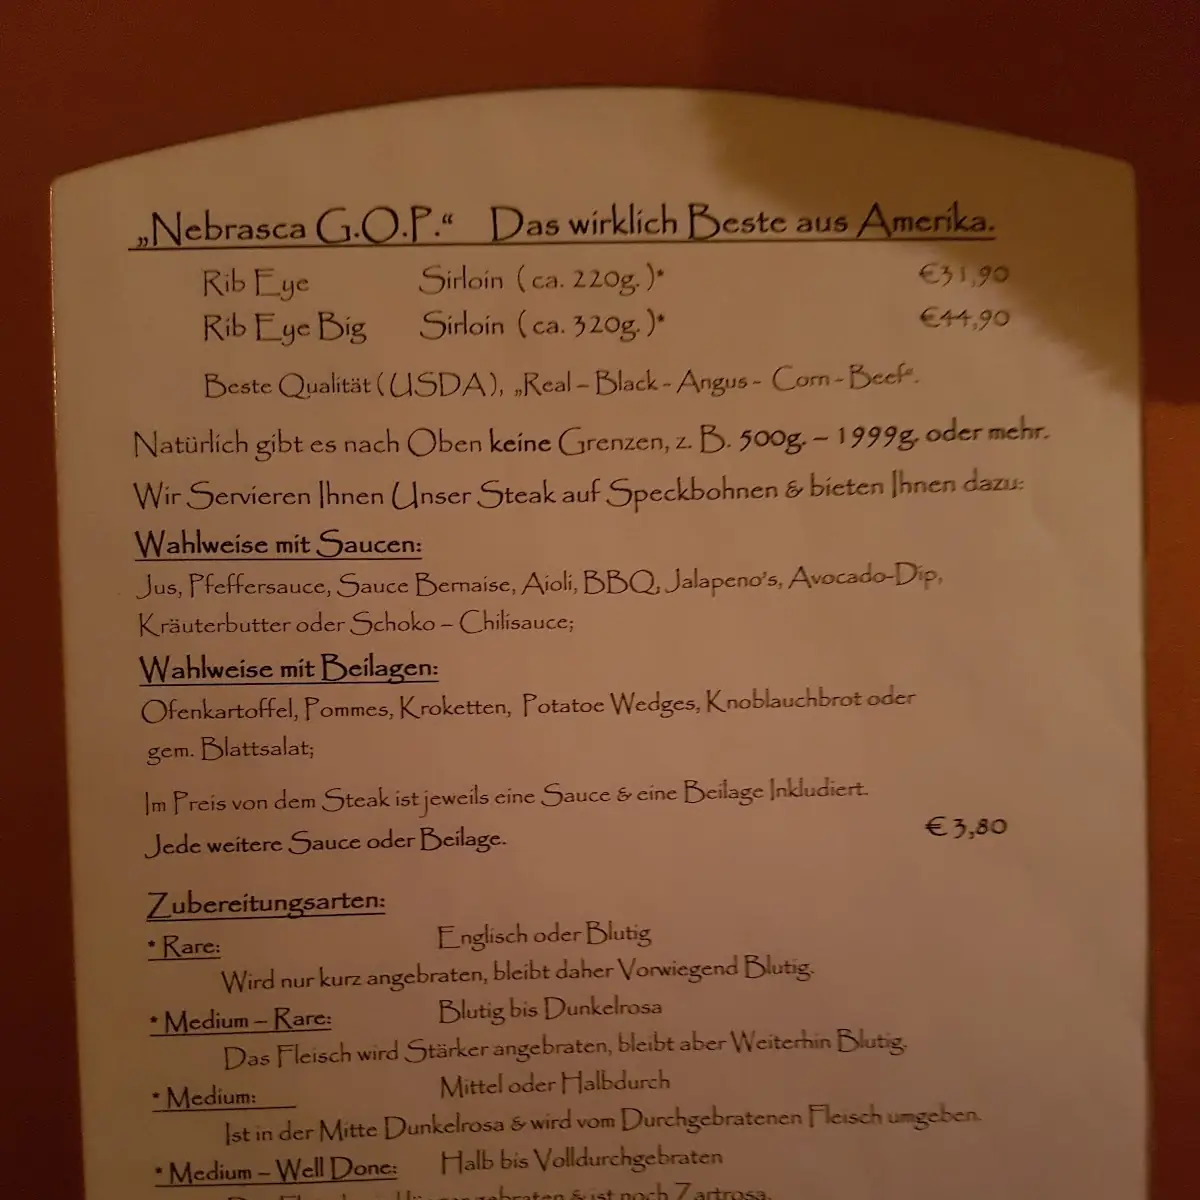 „Nebrasca G.O.P.“ Das wirklich Beste aus Amerika.
Rib Eye Sirloin ( ca. 220g. )* €31,90
Rib Eye Big Sirloin ( ca. 320g. )* €44,90
Beste Qualität ( USDA ), „Real – Black - Angus - Corn - Beef“.
Natürlich gibt es nach Oben keine Grenzen, z. B. 500g. – 1999g. oder mehr.
Wir Servieren Ihnen Unser Steak auf Speckbohnen & bieten Ihnen dazu:
Wahlweise mit Saucen:
Jus, Pfeffersauce, Sauce Bernaise, Aioli, BBQ, Jalapeno's, Avocado-Dip,
Kräuterbutter oder Schoko – Chilisauce;
Wahlweise mit Beilagen:
Ofenkartoffel, Pommes, Kroketten, Potatoe Wedges, Knoblauchbrot oder
gem. Blattsalat;
Im Preis von dem Steak ist jeweils eine Sauce & eine Beilage Inkludiert.
Jede weitere Sauce oder Beilage. € 3,80
Zubereitungsarten:
* Rare: Englisch oder Blutig
Wird nur kurz angebraten, bleibt daher Vorwiegend Blutig.
* Medium – Rare: Blutig bis Dunkelrosa
Das Fleisch wird Stärker angebraten, bleibt aber Weiterhin Blutig.
* Medium: Mittel oder Halbdurch
Ist in der Mitte Dunkelrosa & wird vom Durchgebratenen Fleisch umgeben.
* Medium – Well Done: Halb bis Volldurchgebraten
& ist noch Zartrosa.